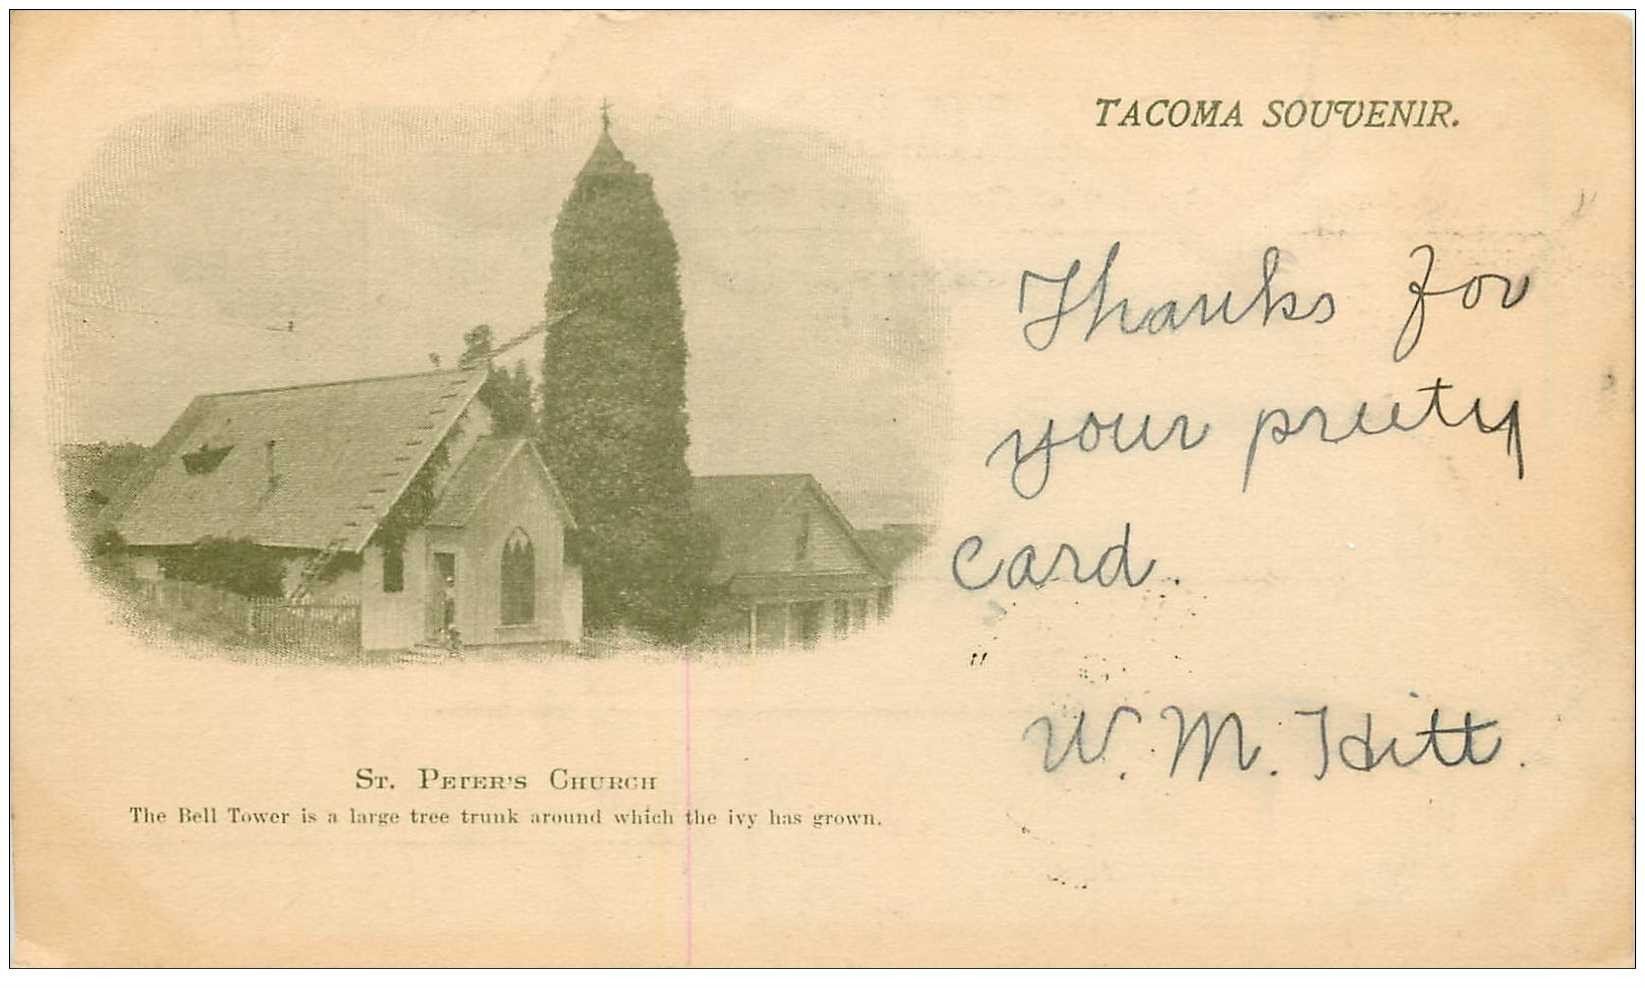 TACOMA SOUVENIR.
Thanks for
your pretty
card.
W. M. Hitt.
ST. PETER'S CHURCH
The Bell Tower is a large tree trunk around which the ivy has grown.